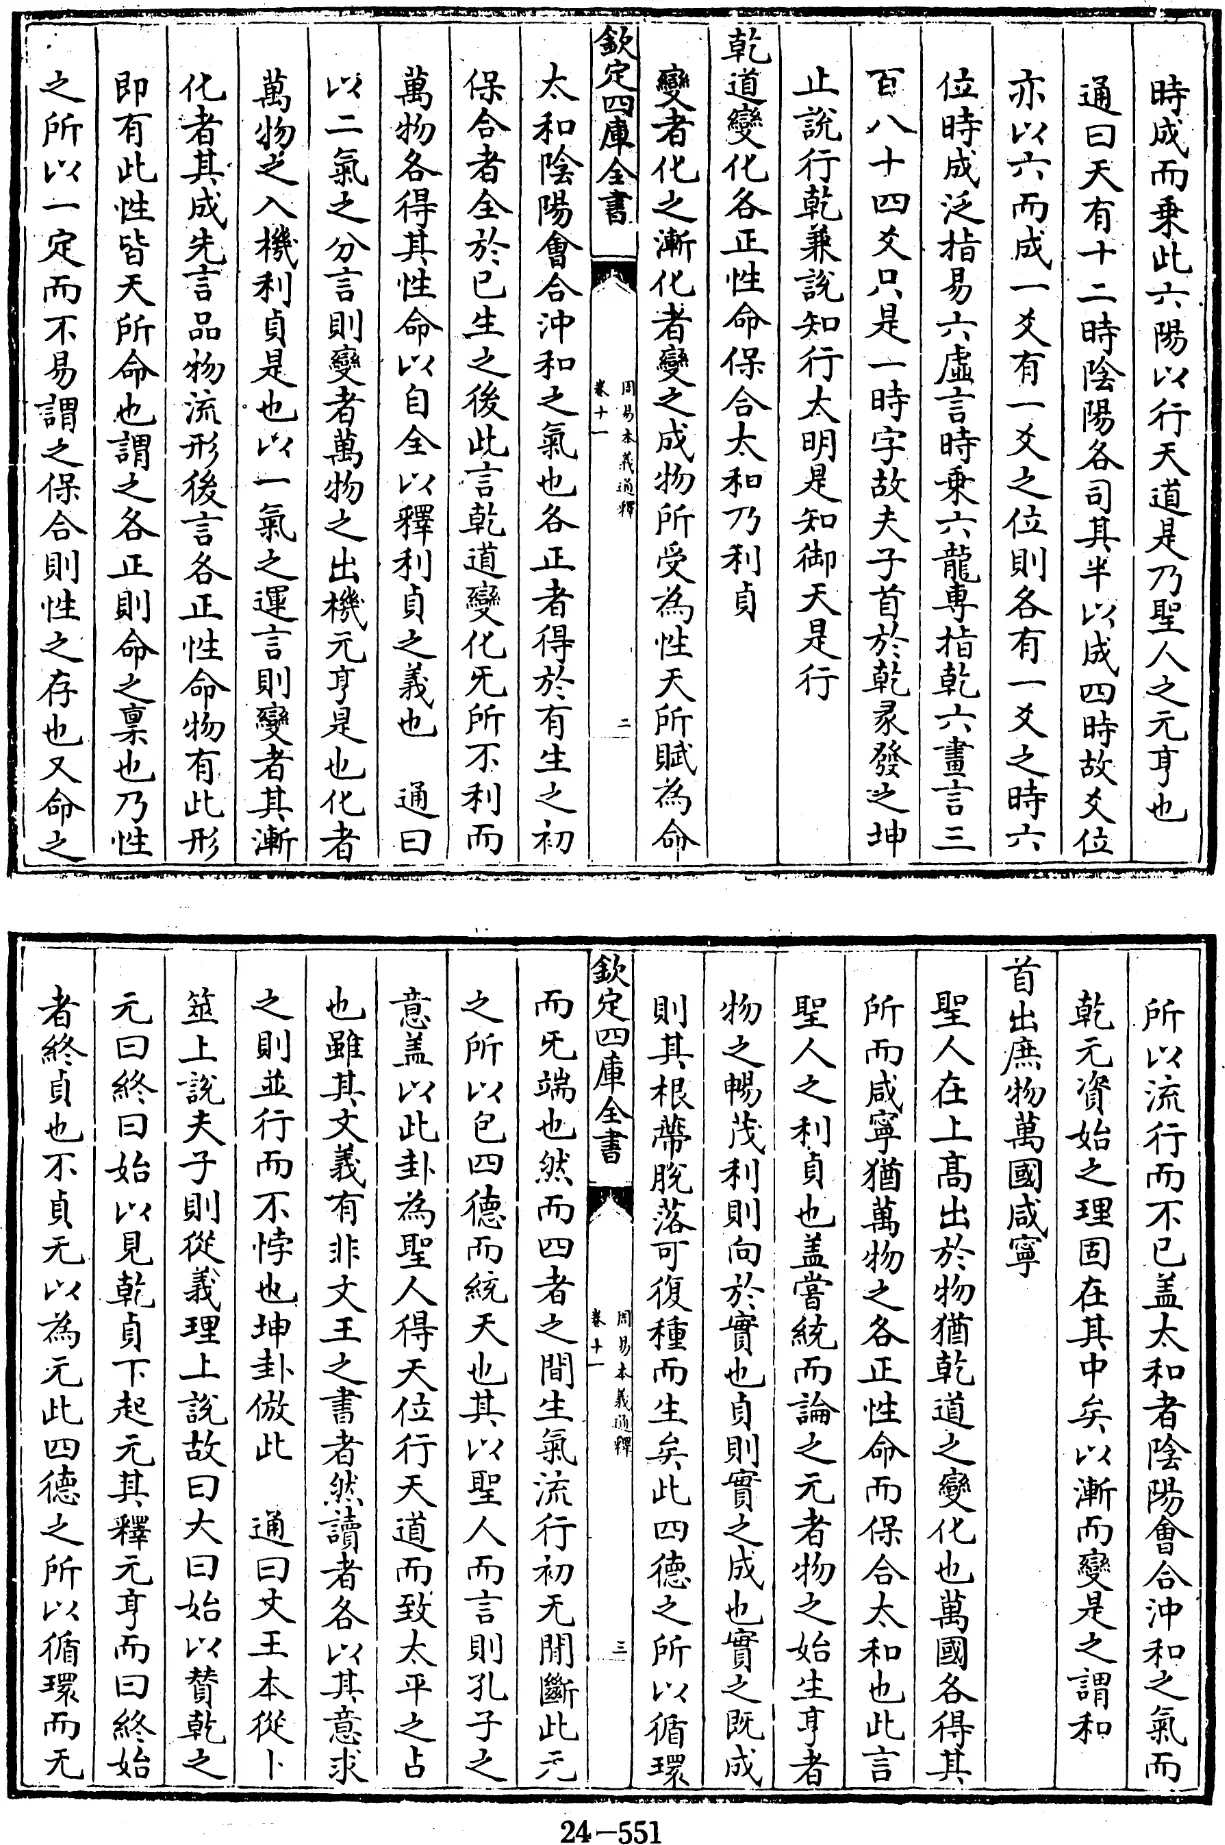 時成而乗此六陽以行天道是乃聖人之元亨也
通曰天有十二時陰陽各司其半以成四時故爻位
亦以六而成一爻有一爻之位則各有一爻之時六
位時成泛指易六虛言時乗六龍專指乾六畫言三
百八十四爻只是一時字故夫子首於乾彖發之坤
止説行乾兼説知行大明是知御天是行
乾道變化各正性命保合太和乃利貞
變者化之漸化者變之成物所受為性天所賦為命
欽定四庫全書
周易本義通釋
卷十一
二
太和陰陽會合沖和之氣也各正者得於有生之初
保合者全於已生之後此言乾道變化无所不利而
萬物各得其性命以自全以釋利貞之義也　通曰
以二氣之分言則變者萬物之出機元亨是也化者
萬物之入機利貞是也以一氣之運言則變者其漸
化者其成先言品物流形後言各正性命物有此形
即有此性皆天所命也謂之各正則命之稟也乃性
之所以一定而不易謂之保合則性之存也又命之
所以流行而不已盖太和者陰陽會合沖和之氣而
乾元資始之理固在其中矣以漸而變是之謂和
首出庶物萬國咸寧
聖人在上髙出於物猶乾道之變化也萬國各得其
所而咸寧猶萬物之各正性命而保合太和也此言
聖人之利貞也盖嘗統而論之元者物之始生亨者
物之暢茂利則向於實也貞則實之成也實之既成
則其根蒂脱落可復種而生矣此四德之所以循環
欽定四庫全書
周易本義通釋
卷十一
三
而无端也然而四者之間生氣流行初无間斷此元
之所以包四德而統天也其以聖人而言則孔子之
意盖以此卦為聖人得天位行天道而致太平之占
也雖其文義有非文王之書者然讀者各以其意求
之則並行而不悖也坤卦倣此　通曰文王本從卜
筮上説夫子則從義理上説故曰大曰始以賛乾之
元曰終曰始以見乾貞下起元其釋元亨而曰終始
者終貞也不貞无以為元此四德之所以循環而无
24-551